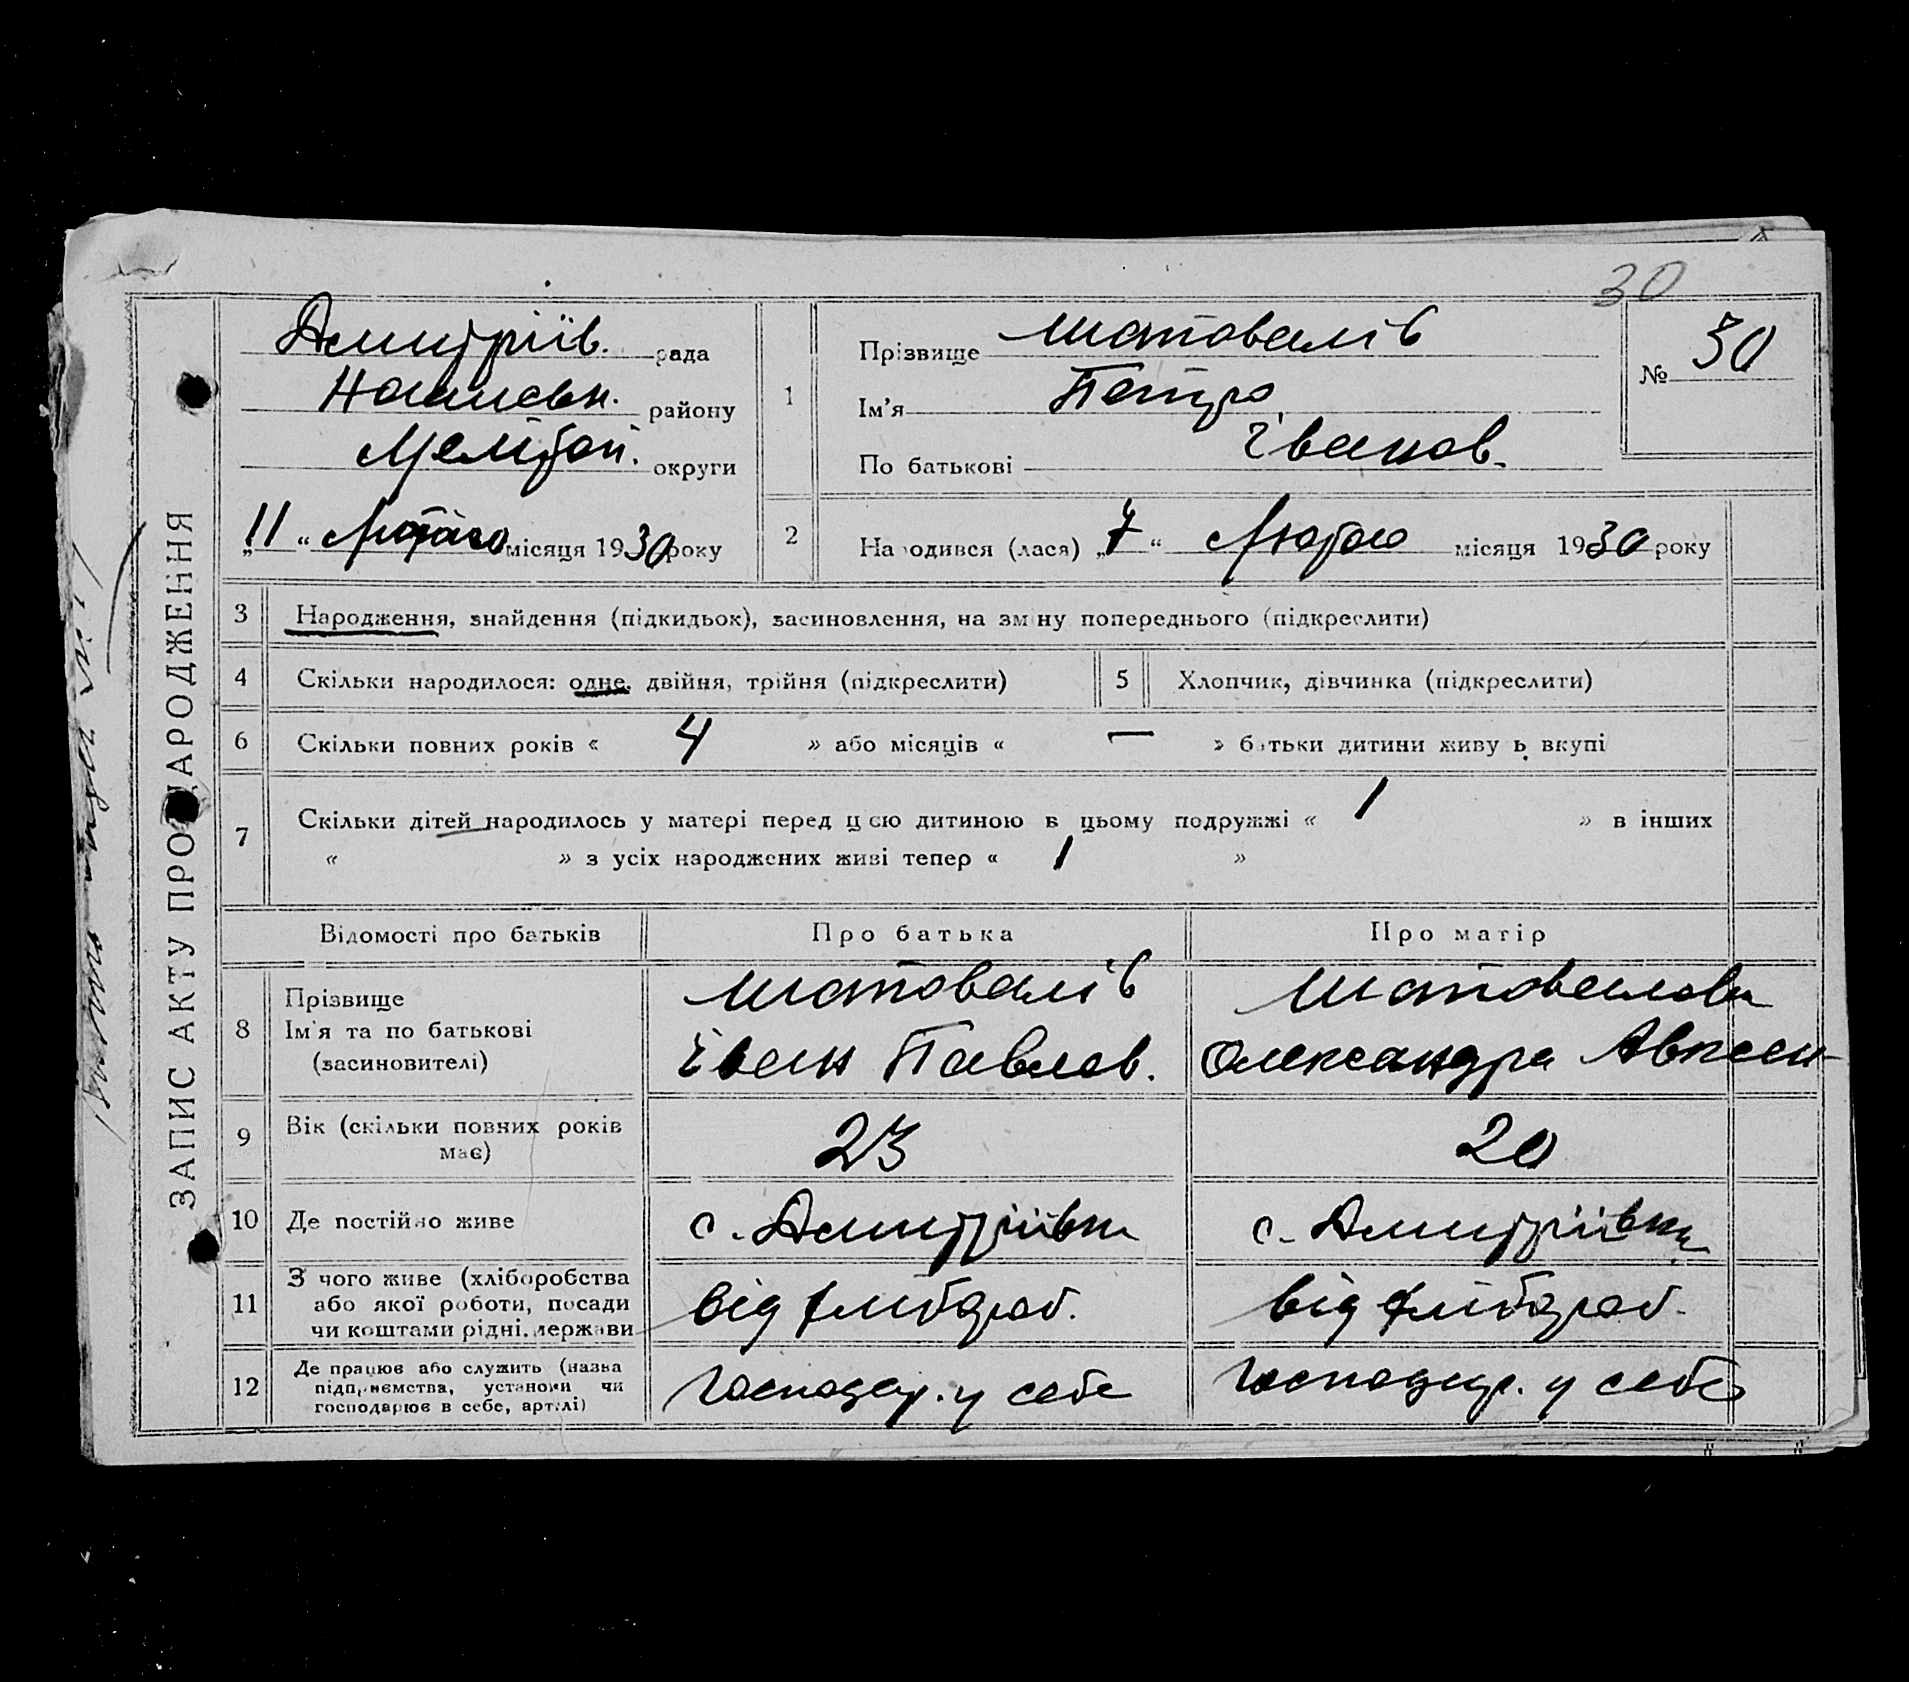 30
ЗАПИС АКТУ ПРО НАРОДЖЕННЯ
Дмитріїв. рада
району
Мелітоп. округи
"11" Лютого місяця 1930 року
1
Прізвище Шаповалів
Ім'я Петро
По батькові Іванов.
№ 30
2
Народився (лася) "7" Лютого місяця 1930 року
3 Народження, знайдення (підкидьок), засиновлення, на зміну попереднього (підкреслити)
4 Скільки народилося: одне, двійня, трійня (підкреслити)
5 Хлопчик, дівчинка (підкреслити)
6 Скільки повних років « 4 » або місяців « — » батьки дитини живуть вкупі
7 Скільки дітей народилось у матері перед цією дитиною в цьому подружжі « 1 » в інших
« » з усіх народжених живі тепер « 1 »
Відомості про батьків Про батька Про матір
8 Прізвище
Ім'я та по батькові
(засиновителі)
Шаповалів
Іван Павлов.
Шаповалова
Олександра Авксен
9 Вік (скільки повних років
має)
23
20
10 Де постійно живе
с. Дмитрівка
с. Дмитрівка
11 З чого живе (хліборобства
або якої роботи, посади
чи коштами рідні, держави
від хлібороб.
від хлібороб.
12 Де працює або служить (назва
підприємства, установи чи
господарює в себе, артілі)
Господар. у себе
Господар. у себе